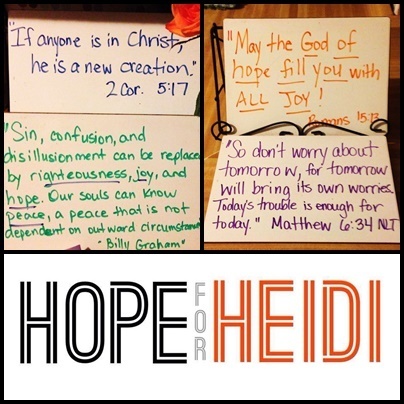 "If anyone is in Christ,
he is a new creation."
2 Cor. 5:17
"Sin, confusion, and
disillusionment can be replaced
by righteousness, joy, and
hope. Our souls can know
peace, a peace that is not
dependent on outward circumstance
- Billy Graham"
"May the God of
hope fill you with
ALL JOY!
Romans 15:13
"So don't worry about
tomorrow, for tomorrow
will bring its own worries.
Today's trouble is enough for
today." Matthew 6:34 NLT
HOPE FOR HEIDI